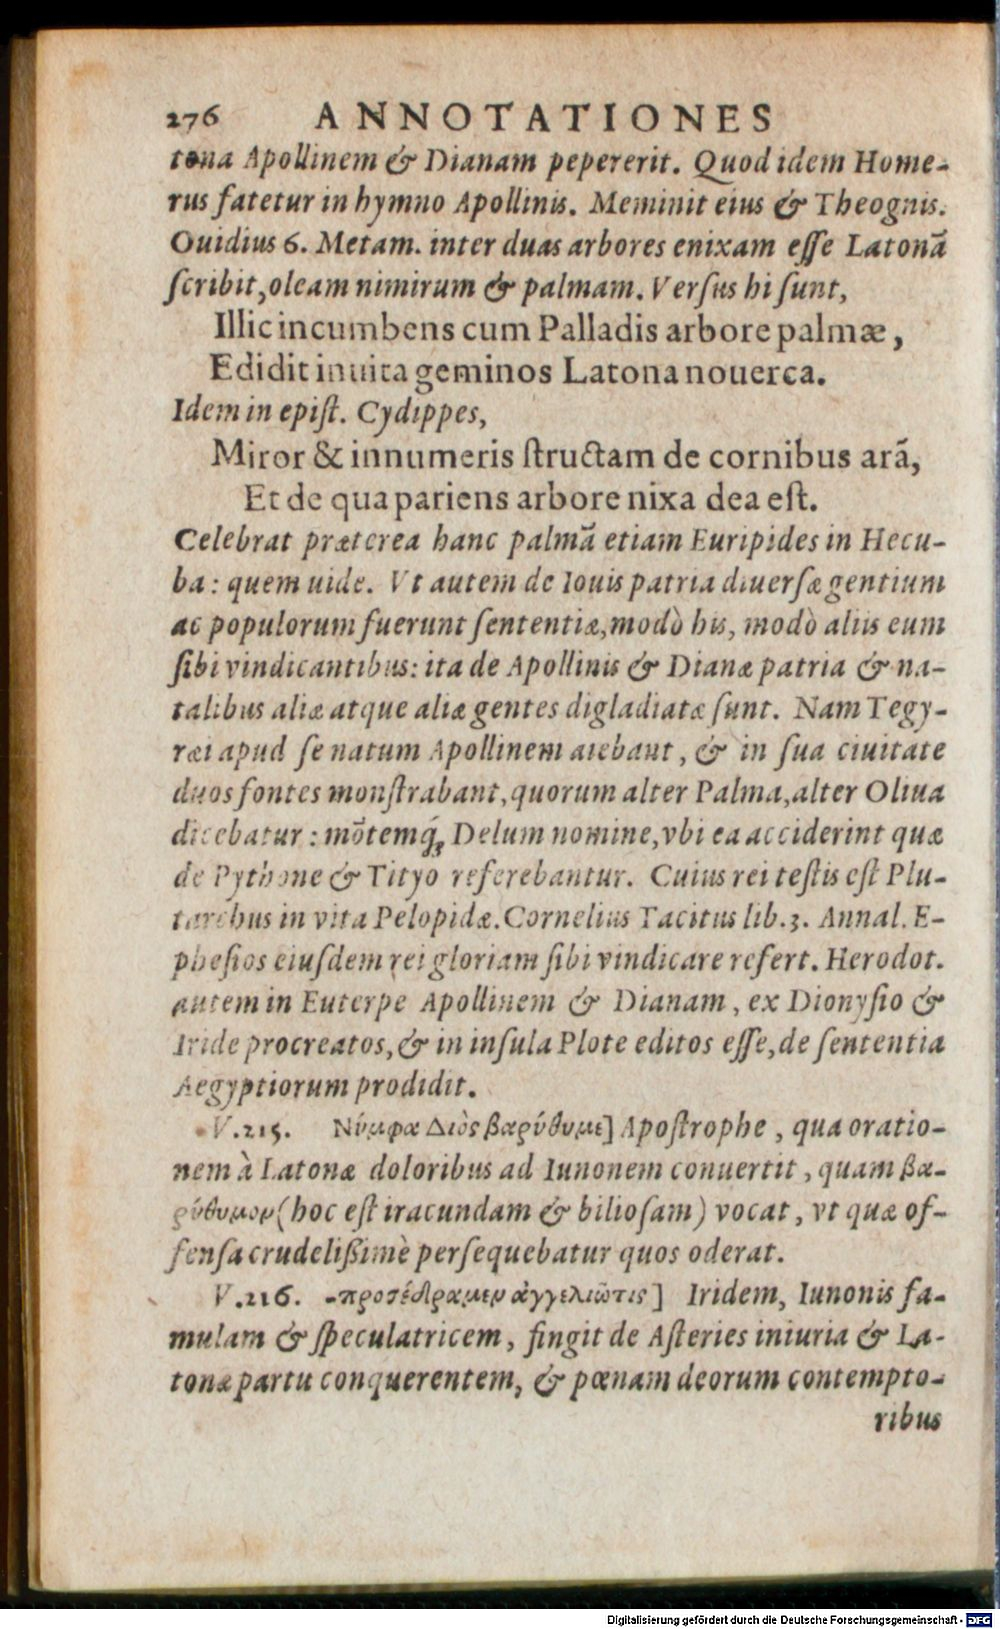 276 ANNOTATIONES
tona Apollinem & Dianam pepererit. Quod idem Home-
rus fatetur in hymno Apollinis. Meminit eius & Theognis.
Ouidius 6. Metam. inter duas arbores enixam eſſe Latonā
ſcribit, oleam nimirum & palmam. Verſus hi ſunt,
Illic incumbens cum Palladis arbore palmæ,
Edidit inuita geminos Latona nouerca.
Idem in epiſt. Cydippes,
Miror & innumeris ſtructam de cornibus arā,
Et de qua pariens arbore nixa dea eſt.
Celebrat præterea hanc palmā etiam Euripides in Hecu-
ba: quem uide. Vt autem de Iouis patria diuerſæ gentium
ac populorum fuerunt ſententiæ, modò his, modò aliis eum
ſibi vindicantibus: ita de Apollinis & Dianæ patria & na-
talibus aliæ atque aliæ gentes digladiatæ ſunt. Nam Tegy-
ræi apud ſe natum Apollinem aiebant, & in ſua ciuitate
duos fontes monſtrabant, quorum alter Palma, alter Oliua
dicebatur: mōtemq́; Delum nomine, vbi ea acciderint quæ
de Pythone & Tityo referebantur. Cuius rei teſtis eſt Plu-
tarchus in vita Pelopidæ. Cornelius Tacitus lib. 3. Annal. E-
pheſios eiuſdem rei gloriam ſibi vindicare refert. Herodot.
autem in Euterpe Apollinem & Dianam, ex Dionyſio &
Iride procreatos, & in inſula Plote editos eſſe, de ſententia
Aegyptiorum prodidit.
V. 215. Νύμφα Διὸς βαρύθυμε] Apoſtrophe, qua oratio-
nem à Latonæ doloribus ad Iunonem conuertit, quam βα-
ρύθυμον (hoc eſt iracundam & bilioſam) vocat, vt quæ of-
fenſa crudelißimè perſequebatur quos oderat.
V. 216. -προσέδραμεν ἀγγελιῶτις] Iridem, Iunonis fa-
mulam & ſpeculatricem, fingit de Aſteries iniuria & La-
tonæ partu conquerentem, & pœnam deorum contempto-
ribus
Digitalisierung gefördert durch die Deutsche Forschungsgemeinschaft - DFG